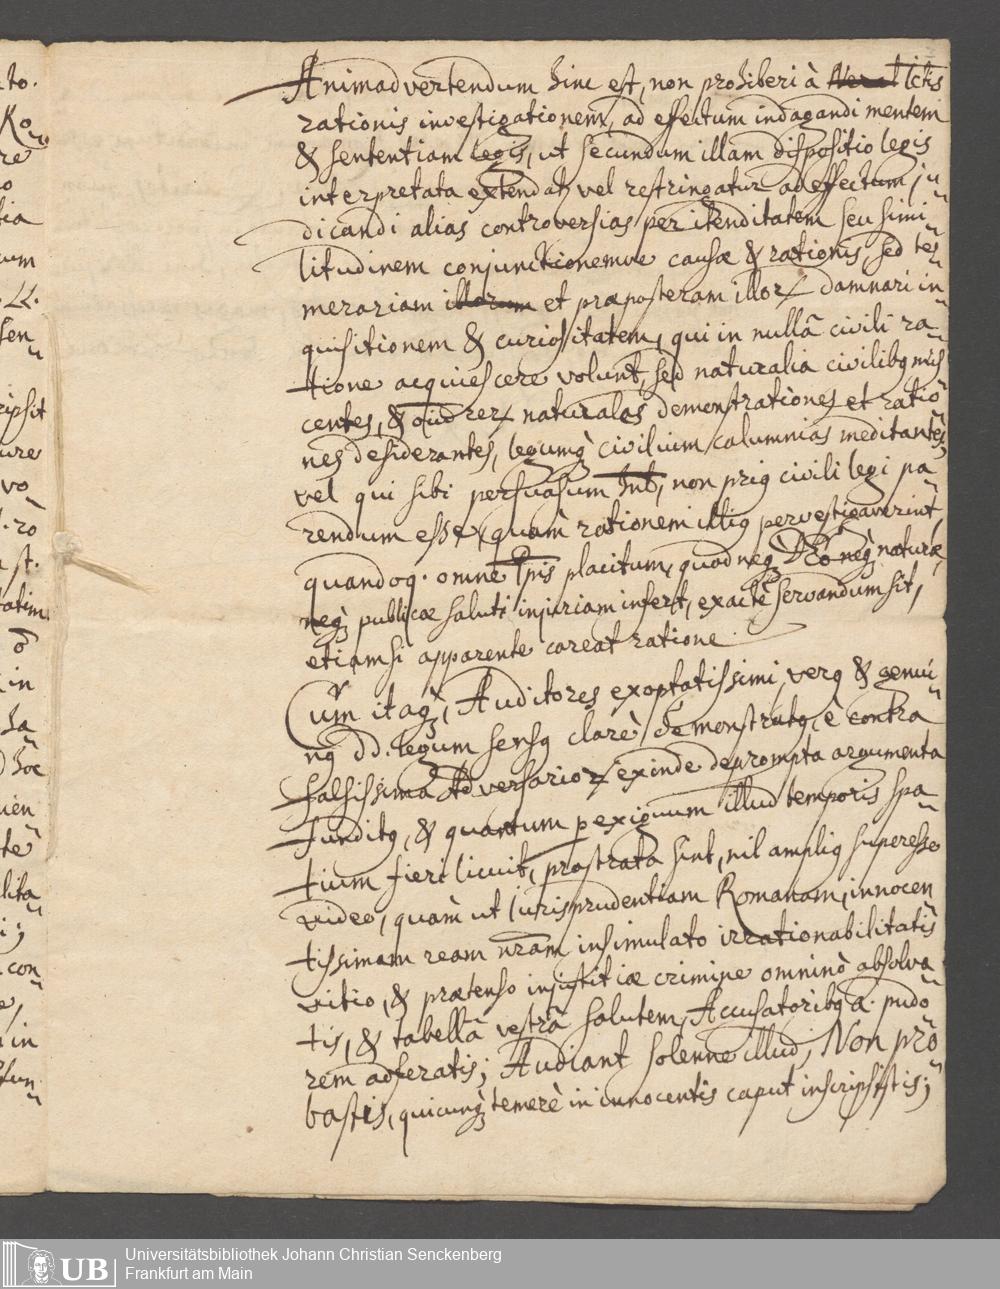 Animadvertendum hinc est, non prohiberi à Ictis
rationis investigationem, ad effectum indagandi mentem
& sententiam legis, ut secundum illam dispositio legis
interpretata extendatr vel restringatur ad effectum ju
dicandi alias controversias per identitatem seu simi
litudinem conjunctionemve causæ & rationis, sed te
merariam illorum et præposteram illorꝝ damnari in
quisitionem & curiositatem, qui in nullâ civili ra
tione acquiescere volunt, sed naturalia civilibq mis
centes, & apud rerꝝ naturales demonstrationes et ratio
nes desiderantes, legumq̀ civilium calumnias meditantes,
vel qui sibi persuasum hnt, non priq civili legi pa
rendum esse, quàm rationem illiq pervestigaverint,
quandoq. omne Ppis placitum, quod neq DEo neq naturæ,
neq publicæ saluti injuriam infert, exactè servandum sit,
etiamsi apparente careat ratione.
Cùm itaq, Auditores exoptatissimi, verq & genui
nq dd. legum sensq clarè demonstratq, è contra
falsissima Adversarioꝝ exinde deprompta argumenta
funditq, & quantum p exiguum illud temporis spa
tium fieri licuit, prostrata sint, nil ampliq superesse
video, quàm ut Jurisprudentiam Romanam, innocen
tissimam ream nram insimulato irrationabilitatis
vitio, & prætenso injustitiæ crimine omninò absolva
tis, & tabellâ vestrâ salutem, Accusatoribq a. pudo
rem adferatis; Audiant solenne illud, Non pro
bastis, quicunq temerè in innocentis caput inscripsistis;
Universitätsbibliothek Johann Christian Senckenberg
Frankfurt am Main
UB